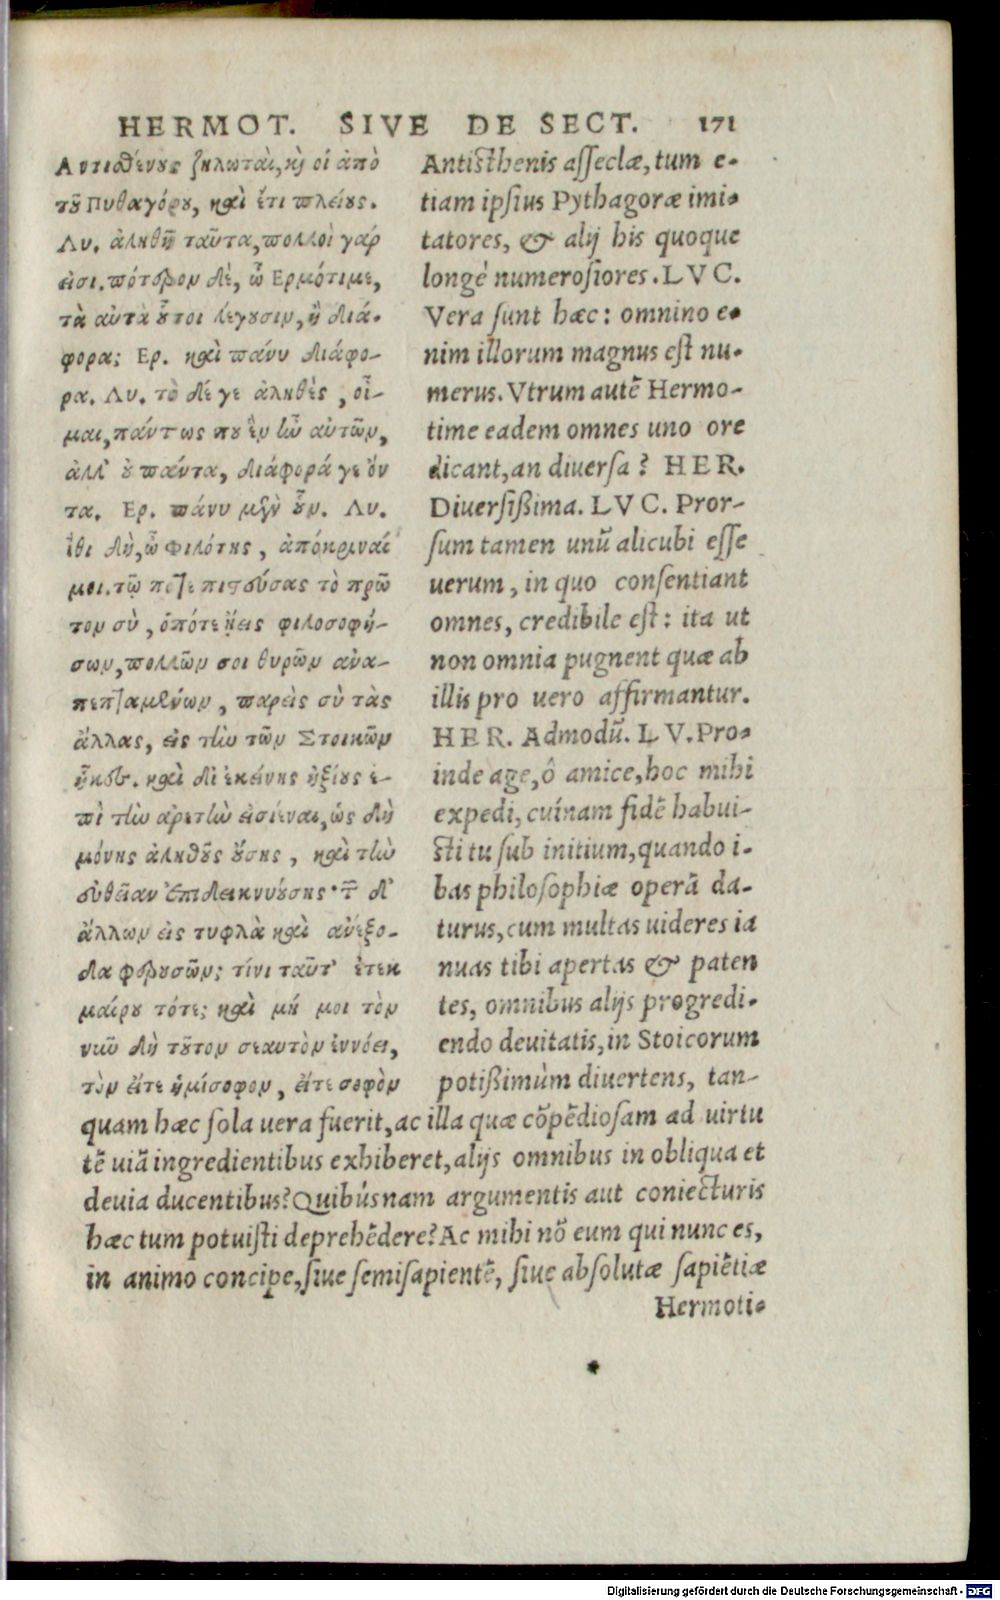 HERMOT. SIVE DE SECT. 171
Αντισθένους ζηλωταὶ, καὶ οἱ ἀπὸ
τοῦ Πυθαγόρου, καὶ ἔτι πλείους.
Λυ. ἀληθῆ ταῦτα, πολλοὶ γάρ
εἰσι. πότερον δὲ, ὦ Ερμότιμε,
τὰ αὐτὰ οὗτοι λέγουσιν, ἢ διά-
φορα; Ερ. καὶ πάνυ διάφο-
ρα. Λυ. τὸ δέ γε ἀληθὲς, οἶ-
μαι, πάντως που ἓν ἦν αὐτῶν,
ἀλλ' οὐ πάντα, διάφορά γε ὄν
τα. Ερ. πάνυ μὲν οὖν. Λυ.
ἴθι δὴ, ὦ Φιλότης, ἀπόκριναί
μοι. τῷ ποτε πιστεύσας τὸ πρῶ
τον σὺ, ὁπότε ᾔεις φιλοσοφή-
σων, πολλῶν σοι θυρῶν ἀνα-
πεπταμένων, παρεὶς σὺ τὰς
ἄλλας, εἰς τὴν τῶν Στοικῶν
ἧκες. καὶ δι' ἐκείνης ἠξίους ἐ-
πὶ τὴν ἀρετὴν εἰσιέναι, ὡς δὴ
μόνης ἀληθοῦς οὔσης, καὶ τὴν
εὐθεῖαν ἐπιδεικνυούσης· τῶν δ'
ἄλλων εἰς τυφλὰ καὶ ἀνέξο-
δα φερουσῶν; τίνι ταῦτ' ἐτεκ
μαίρου τότε; καὶ μή μοι τὸν
νῦν δὴ τοῦτον σεαυτὸν ἐννόει,
τὸν εἴτε ἡμίσοφον, εἴτε σοφὸν
Antisthenis asseclæ, tum e-
tiam ipsius Pythagoræ imi-
tatores, & alij his quoque
longè numerosiores. LVC.
Vera sunt hæc: omnino e-
nim illorum magnus est nu-
merus. Vtrum autẽ Hermo-
time eadem omnes uno ore
dicant, an diuersa? HER.
Diuersißima. LVC. Pror-
sum tamen unũ alicubi esse
uerum, in quo consentiant
omnes, credibile est: ita ut
non omnia pugnent quæ ab
illis pro uero affirmantur.
HER. Admodũ. LV. Pro-
inde age, ô amice, hoc mihi
expedi, cuínam fidẽ habui-
sti tu sub initium, quando i-
bas philosophiæ operã da-
turus, cum multas uideres ia
nuas tibi apertas & paten
tes, omnibus alijs progredi-
endo deuitatis, in Stoicorum
potißimùm diuertens, tan-
quam hæc sola uera fuerit, ac illa quæ cõpẽdiosam ad uirtu
tẽ uiã ingredientibus exhiberet, alijs omnibus in obliqua et
deuia ducentibus? Quibúsnam argumentis aut coniecturis
hæc tum potuisti deprehẽdere? Ac mihi nõ eum qui nunc es,
in animo concipe, siue semisapientẽ, siue absolutæ sapiẽtiæ
Hermoti-
Digitalisierung gefördert durch die Deutsche Forschungsgemeinschaft - DFG